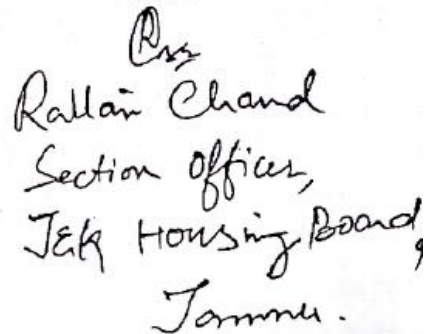 Rallan Chand
Section Officer,
J&K Housing Board,
Jammu.